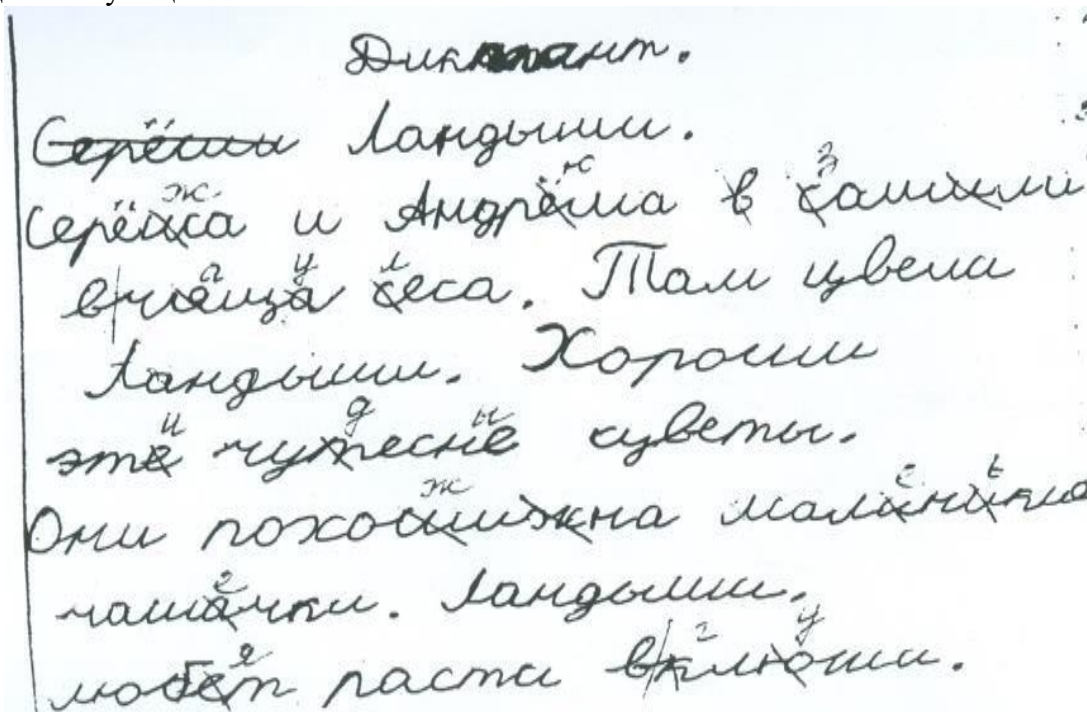 Диктант.
Серёши Ландыши.
Серёша и Андрёша в сашили
вчёща сеса. Там цвели
Ландыши. Хороши
эте чутесне цветы.
Они похошижна малиники
чашачки. Ландыши.
любет расти вклюши.